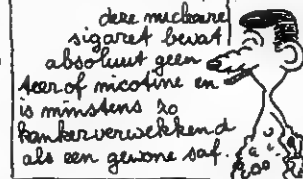 deze nucleaire
sigaret bevat
absoluut geen
teer of nicotine en
is minstens zo
kankerverwekkend
als een gewone saf.